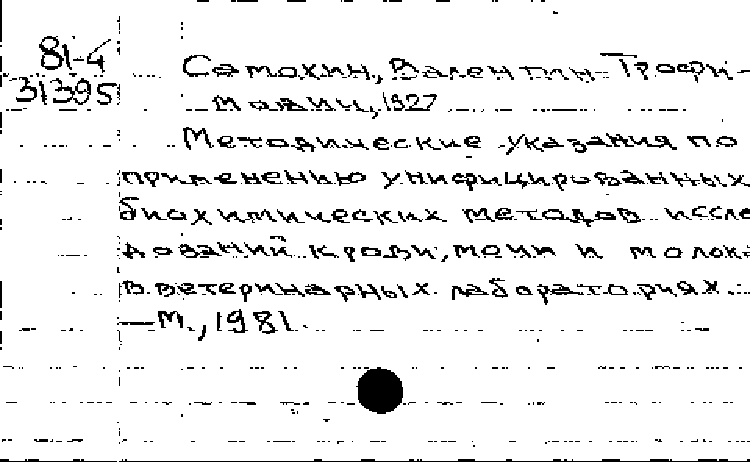 81-4
31395
Самохин, Валентин Трофи-
мович, 1927
Методические указания по
применению унифицированных
биохимических методов иссле
дований крови, мочи и молока
в ветеринарных лабораториях.
—М., 1981.